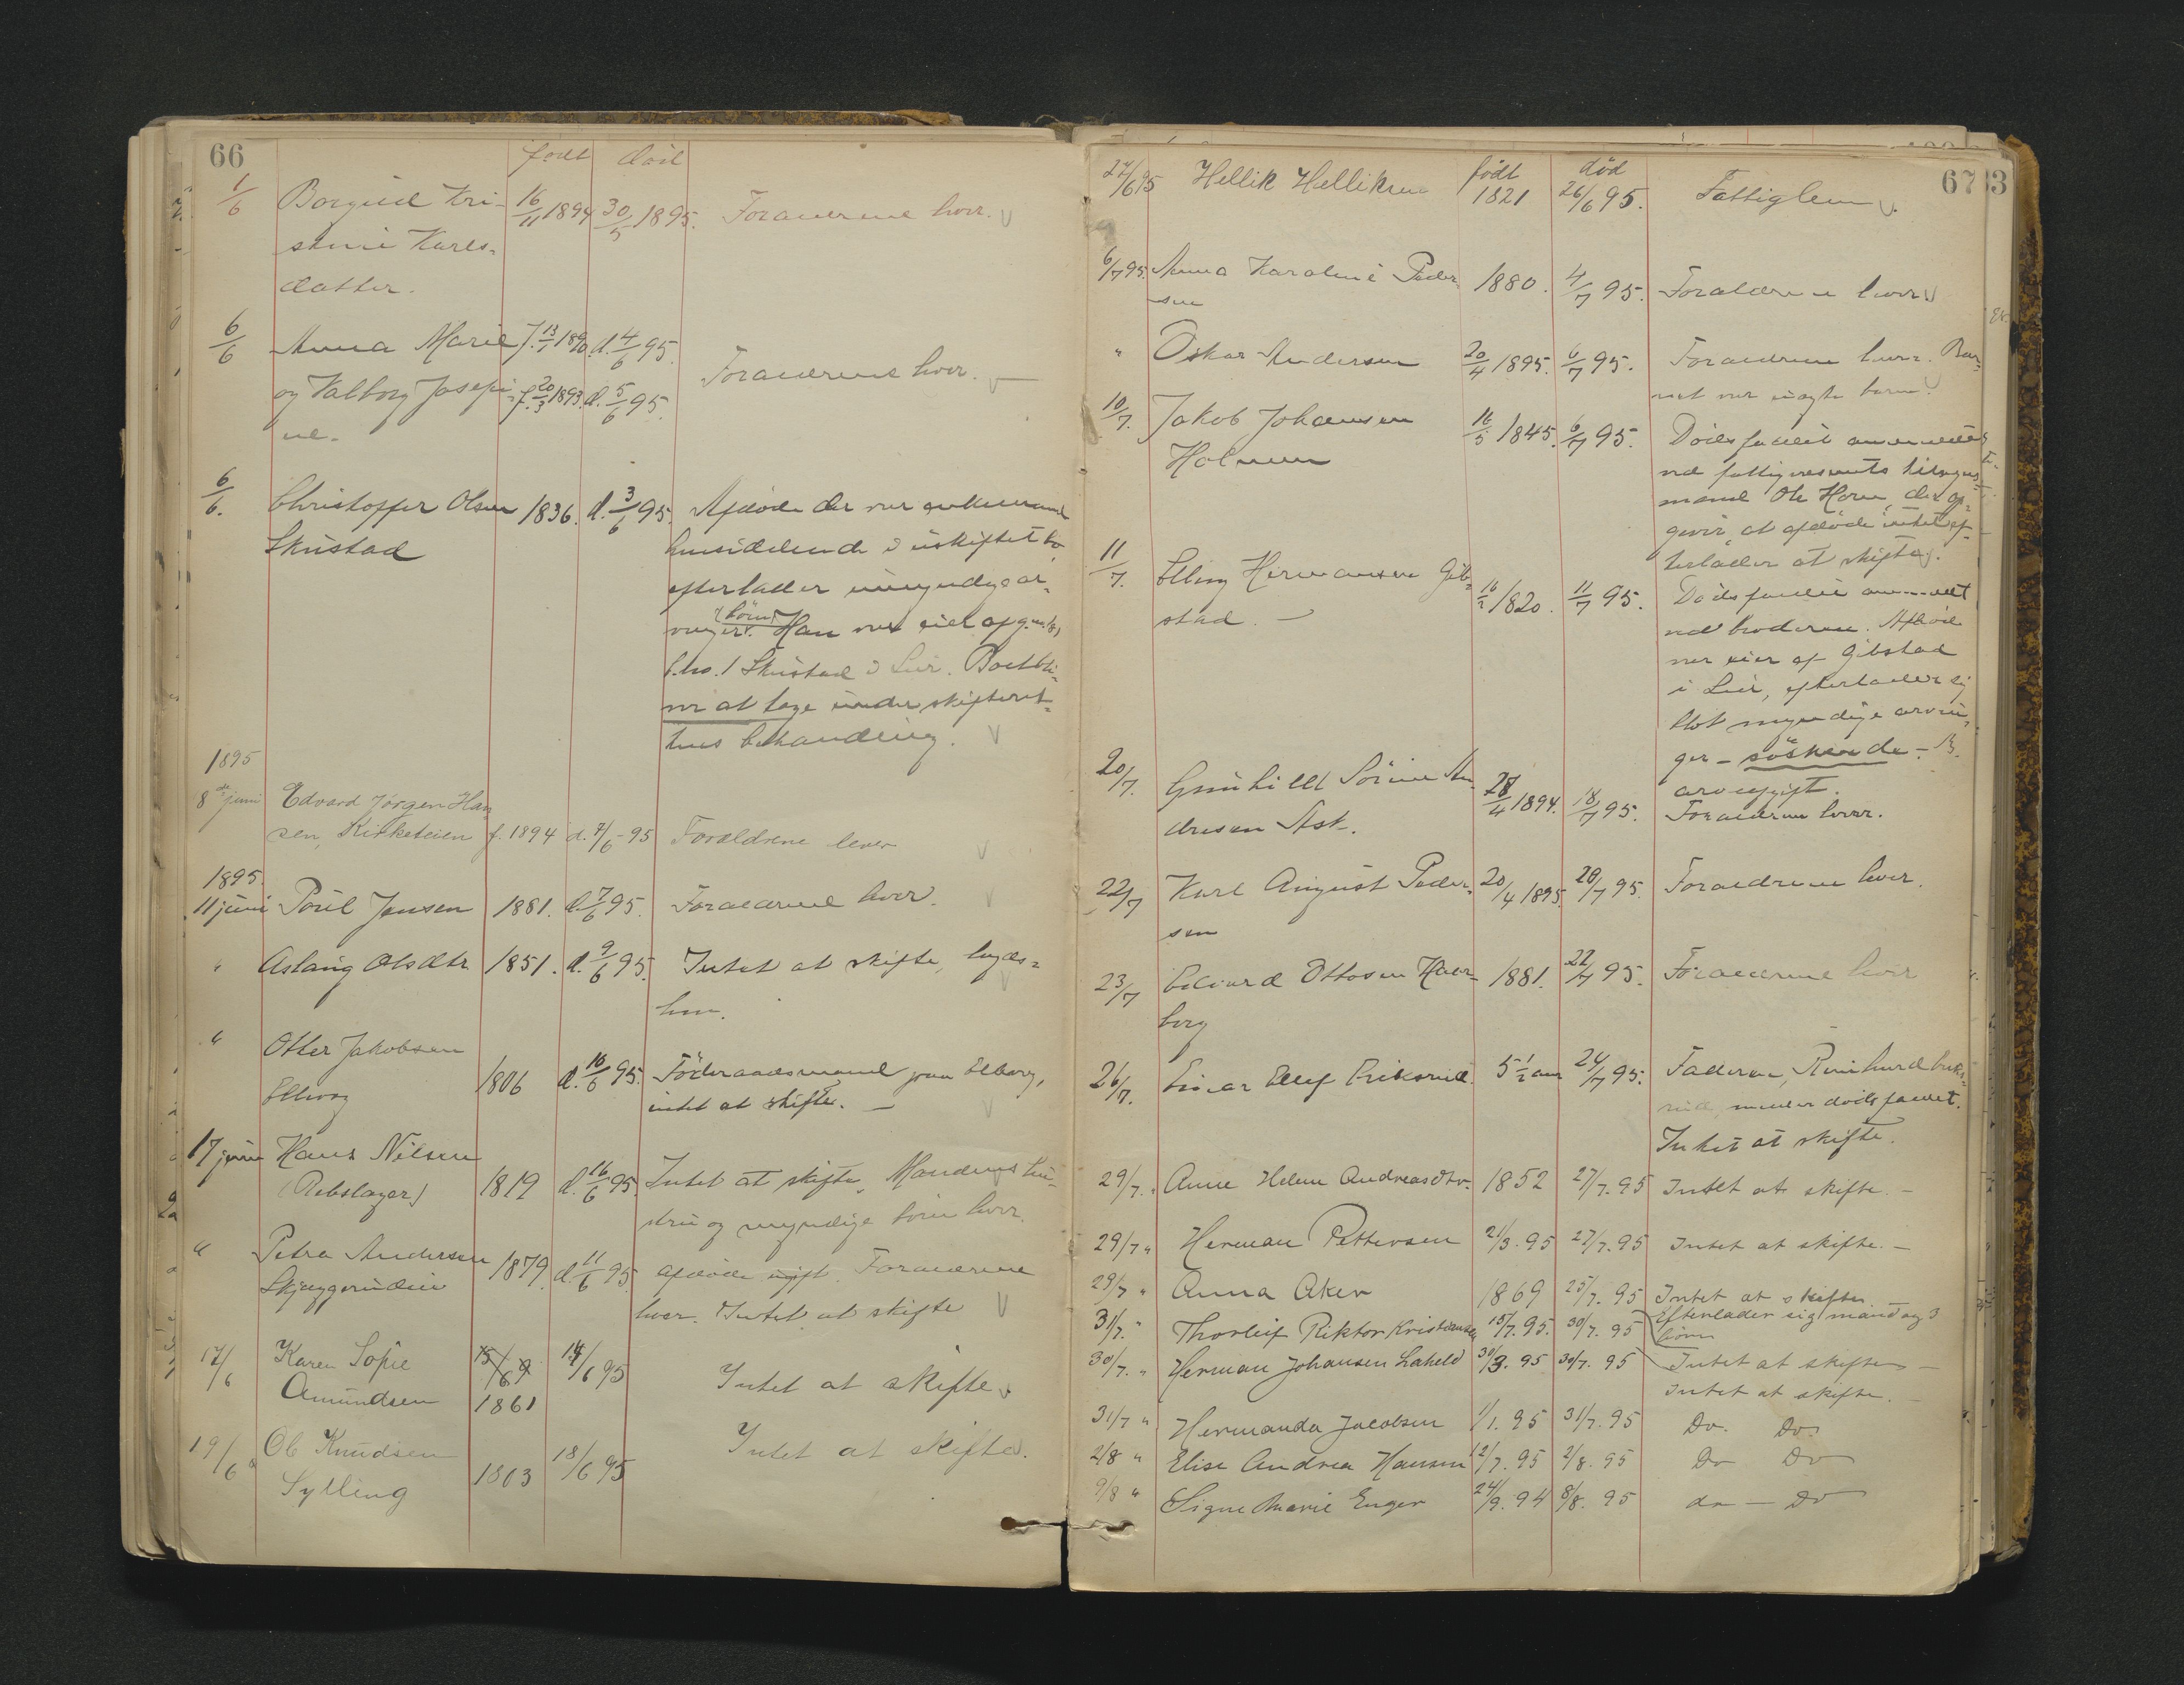 66
født død
1/6 Borgild Kri- 16/11 1894 30/5 1895. Forældrene lever.
stine Karls-
datter.
6/6 Anna Marie f. 13/1 1890. d. 4/6 95.
og Valborg Josefi- f. 20/3 1893. d. 5/6 95. Forældrene lever.
ne.
6/6. Christoffer Olsen 1836. d. 3/6 95. Afdøde der var enkemand
Skustad hensiddende i uskiftet bo,
efterlader umyndige ar-
vinger (børn). Han var eier af g.no. 18,
b.no. 1 Skustad i Lier. Boet bli-
ver at tage under skifteret-
tens behandling.
1895
8de juni Edvard Jørgen Han
sen, Kirketeien f. 1894 d. 7/6-95 Forældrene lever
1895.
11 juni Poul Jensen 1881. d. 7/6 95. Forældrene lever.
" Aslaug Olsdtr. 1851. d. 9/6 95. Intet at skifte, lægds-
lem.
" Otter Jakobsen
Elberg 1806 d. 10/6 95. Föderaadsmand paa Elberg,
intet at skifte. —
17 juni Hans Nilsen
(Rebslager) 1819 d. 16/6 95. Intet at skifte. Mandens hu-
stru og myndige børn lever.
" Petra Andersen 1879. d. 11/6 95. Afdøde ugift. Forældrene
lever. Intet at skifte
17/6 Karen Sofie 15/69 14/6 95 Intet at skifte.
Amundsen 1861
19/6 Ole Knudsen 1803 18/6 95 Intet at skifte.
Sylling
67
født død
27/6 95 Hellik Helliksen 1821 26/6 95. Fattiglem.
6/7 95. Anna Karoline Peder- 1880. 4/7 95. Forældrene lever
sen
" Oskar Andersen 20/4 1895. 6/7 95. Forældrene lever. Bar-
net var uægte barn.
10/7. Jakob Johansen 16/5 1845. 6/7 95. Dødsfaldet anmeldes
Holmen ved fattigvæsenets tilsyns-
mand Ole Horn, der op-
giver, at afdøde intet ef-
terlader at skifte.
11/7. Elling Hermansen Gib- 16/2 1820. 11/7 95. Dødsfaldet anmeldt
stad. — ved broderen. Afdøde
var eier af Gibstad
i Lier, efterlader sig
blot myndige arvin-
ger - søskende -
arveafgift.
20/7. Gunhild Sørine An- 28/4 1894. 18/7 95. Forældrene lever.
dresen Ask.
22/7 Karl August Peder- 20/4 1895. 20/7 95. Forældrene lever.
sen
23/7 Edvard Ottosen Haer- 1881. 22/7 95. Forældrene lever
berg
26/7. Einar Ellef Eriksrud 5 1/2 aar 24/7 95. Faderen, Reinhard Eriks-
rud, melder dødsfaldet.
Intet at skifte.
29/7. " Anne Helene Andreasdtr. 1852 27/7. 95 Intet at skifte. —
29/7 " Herman Pettersen 21/3. 95 27/7. 95 Intet at skifte. —
29/7 " Anna Aker 1869 25/7. 95 Intet at skifte
Efterlader sig mand og 3
børn
31/7. " Thorleif Riktor Kristiansen 15/7. 95. 30/7. 95 Intet at skifte —
30/7. " Herman Johansen Laheld 30/3. 95 30/7. 95 Intet at skifte. —
31/7 " Hermanda Jacobsen 1/1. 95 31/7. 95 Do. Do.
2/8 " Elise Andrea Hansen 12/7. 95 2/8. 95 Do Do
9/8 " Signe Marie Enger 24/9. 94 8/8. 95 do — Do